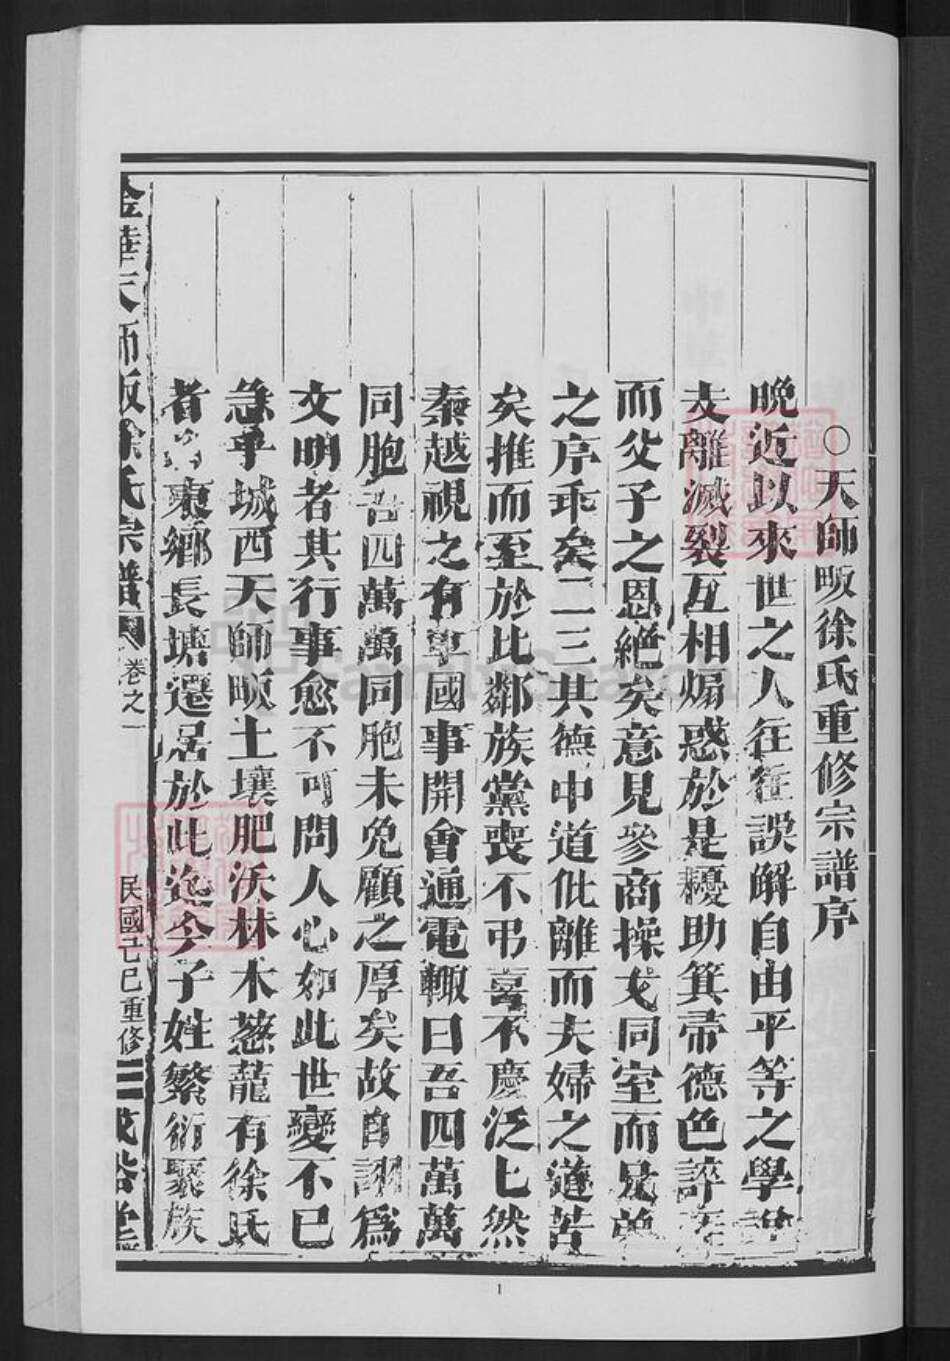 ○天師畈徐氏重修宗譜序
晩近以來世之人往往誤解自由平等之學說
支離滅裂互相煽惑於是耰助箕帚德色誶語
而父子之恩絕矣意見參商操戈同室而兄弟
之序乖矣二三其德中道仳離而夫婦之道苦
矣推而至於比鄰族黨喪不弔喜不慶泛七然
秦越視之有事國事開會通電輙曰吾四萬萬
同胞吾四萬萬同胞未免顧之厚矣故自詡爲
文明者其行事愈不可問人心如此世變不已
急乎城西天師畈土壤肥沃林木葱蘢有徐氏
者東鄉長塘還居於此迄今子姓繁衍聚族
金華天師畈徐氏宗譜 卷之一 民國己巳重修
1